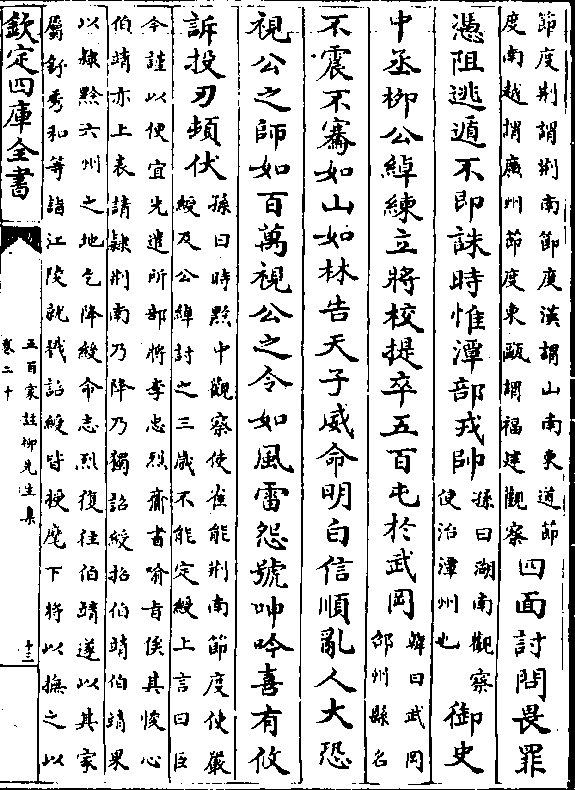 節度荆謂荆南節度漢謂山南東道節
度南越謂廣州節度東甌謂福建觀察
四面討問畏罪
憑阻逃遁不即誅時惟潭部戎帥
孫曰湖南觀察
使治潭州也
御史
中丞柳公綽練立將校提卒五百屯於武岡
韓曰武岡
邵州縣名
不震不騫如山如林告天子威命明白信順亂人大恐
視公之師如百萬視公之令如風雷怨號呻吟喜有攸
訴投刃頻伏
孫曰時黔中觀察使崔能荆南節度使嚴
綬及公綽討之三歲不能定綬上言曰臣
今謹以便宜先遣所部將李忠烈齎書喻旨俟其悛心
伯靖亦上表請隷荆南乃降乃獨詔綬招伯靖伯靖果
以隷黔六州之地乞降綬命志烈復往伯靖遂以其家
屬舒秀和等詣江陵就戮詔綬皆授麾下將以撫之以
欽定四庫全書
五百家註柳先生集
卷二十
十三